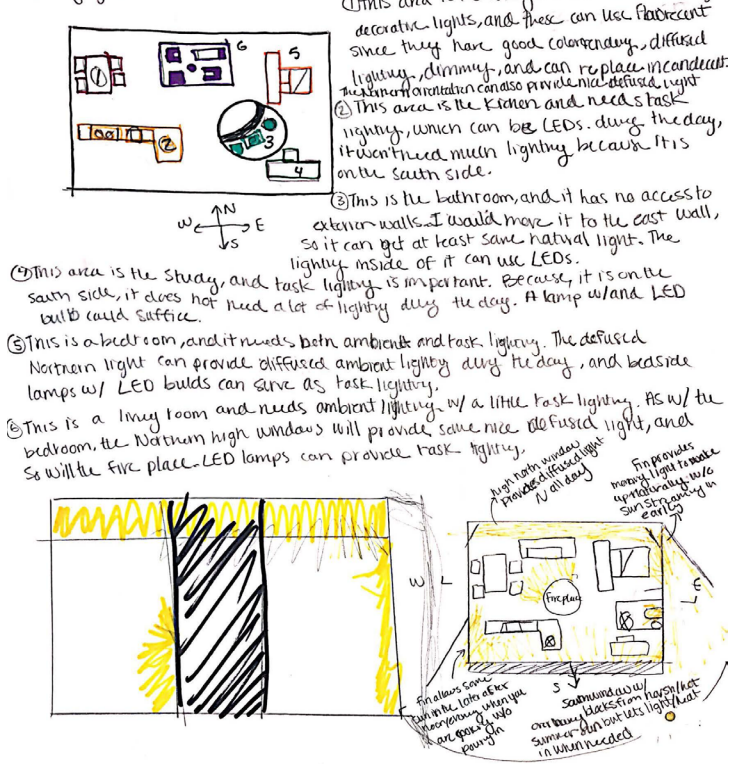 ①This area is
decorative lights, and these can use fluorecent
since they have good colorrendery, diffused
lighting, dimmy, and can replace incandecent.
The northern orientation can also provide nice defused light
②This area is the kitchen and needs task
lighting, which can be LEDs. durg the day,
it won't need much lighting because it is
on the south side.
③This is the bathroom, and it has no access to
exterior walls. I would move it to the east wall,
so it can get at least some natural light. The
lighting inside of it can use LEDs.
④This area is the study, and task lighting is important. Because, it is on the
south side, it does not need a lot of lighting durg the day. A lamp w/and LED
bulb could suffice.
⑤This is a bedroom, and it needs both ambient and task lighting. The defused
Northern light can provide diffused ambient lighting durg the day, and bedside
lamps w/ LED bulbs can serve as task lighting.
⑥This is a living room and needs ambient lighting w/ a little task lighting. As w/ the
bedroom, the Northern high windows will provide some nice defused light, and
so will the fire place. LED lamps can provide task lighting.
1
6
5
2
3
4
N
W
E
S
high north window
provides diffused light
all day
Fin provides
morning light to wake
up naturally w/o
sun streaming in
early
W
Fireplace
E
S
Fin allows some
sun in the later after
noon/evening when you
are cooking w/o
pouring in
South window w/
overhang blocks from harsh/hot
summer sun but lets light/heat
in when needed